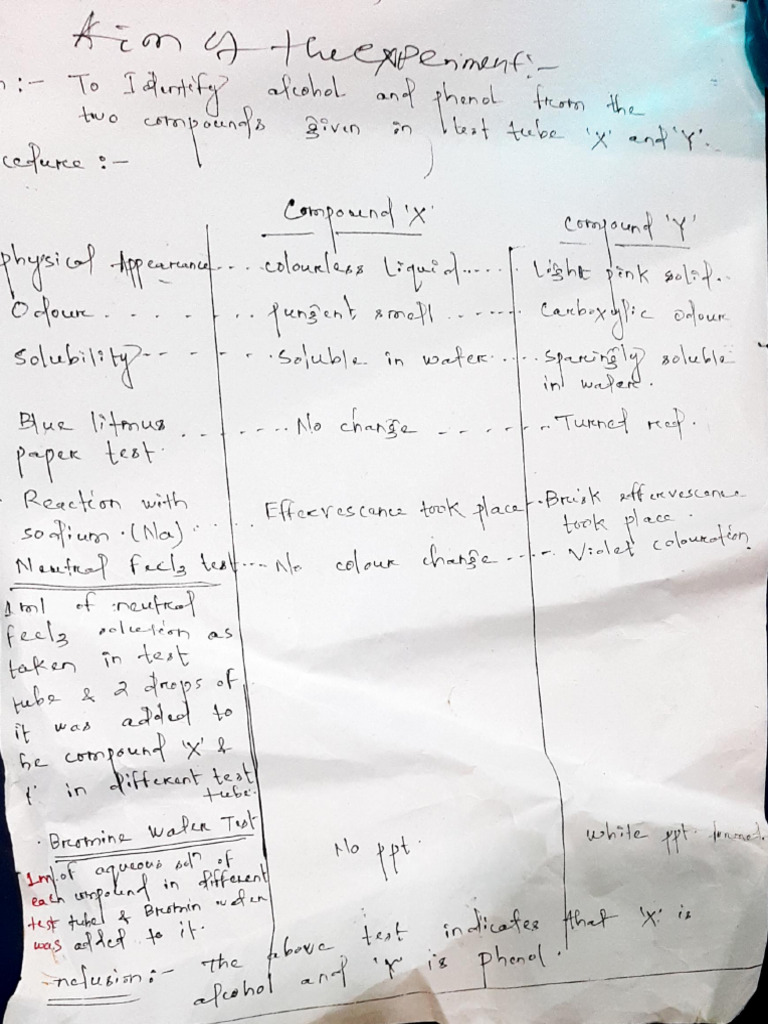 Aim of the experiment:-
n:- To Identify alcohol and phenol from the
two compounds given in test tube 'X' and 'Y'.
cedure:-
Compound 'X'
Compound 'Y'
physical Appearance... colourless liquid..... Light pink solid..
Odour. . . . . . . . . pungent smell ...... Carboxylic odour
solubility-- - - - - . soluble in water..... sparingly soluble
in water.
Blue litmus
paper test. . . ....... No change - - - - - ... Turned red.
Reaction with
sodium.(Na). ... Effervescance took place-. Brisk effervescence
took place.
Neutral Fecl3 test... No colour change ----- Violet colouration
1ml of neutral
fecl3 solution as
taken in test
tube & 2 drops of
it was added to
he compound 'X' &
Y' in different test
tube.
. Bromine Water Test
No ppt.
white ppt. formed.
1ml of aqueous soln of
each compound in different
test tube & Bromin water
was added to it.
nclusion:- The above test indicates that 'X' is
alcohol and 'Y' is phenol.